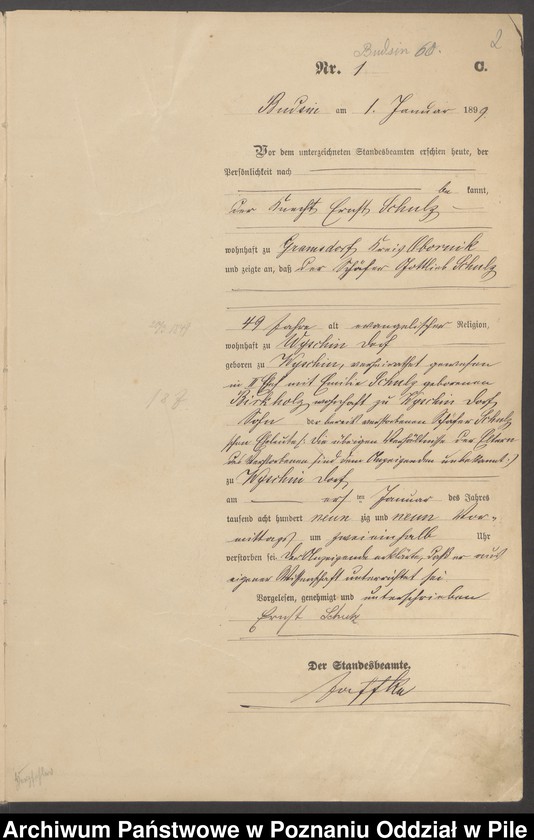 Budsin 60.
2
Nr. 1. C.
Budsin am 1. Januar 1899
Vor dem unterzeichneten Standesbeamten erschien heute, der
Persönlichkeit nach
be kannt,
der Knecht Ernst Schulz
wohnhaft zu Gramsdorf, Kreis Obornik
und zeigte an, daß der Schäfer Gottlieb Schulz
49 Jahre alt evangelischer Religion,
wohnhaft zu Wyschin Dorf
geboren zu Wyschin, verheirathet gewesen
in II Ehe mit Emilie Schulz geborenen
Birkholz, wohnhaft zu Wyschin Dorf,
Sohn der bereits verstorbenen Schäfer Schulz
schen Eheleute /: die übrigen Verhältnisse der Eltern
des Verstorbenen sind dem Anzeigenden unbekannt :/
zu Wyschin Dorf,
am ersten Januar des Jahres
tausend acht hundert neun zig und neun Vor-
mittags um zweieinhalb Uhr
verstorben sei. Der Anzeigende erklärte, daß er aus
eigener Wissenschaft unterrichtet sei
Vorgelesen, genehmigt und unterschrieben
Ernst Schulz
Der Standesbeamte.
Jaffke
Archiwum Państwowe w Poznaniu Oddział w Pile